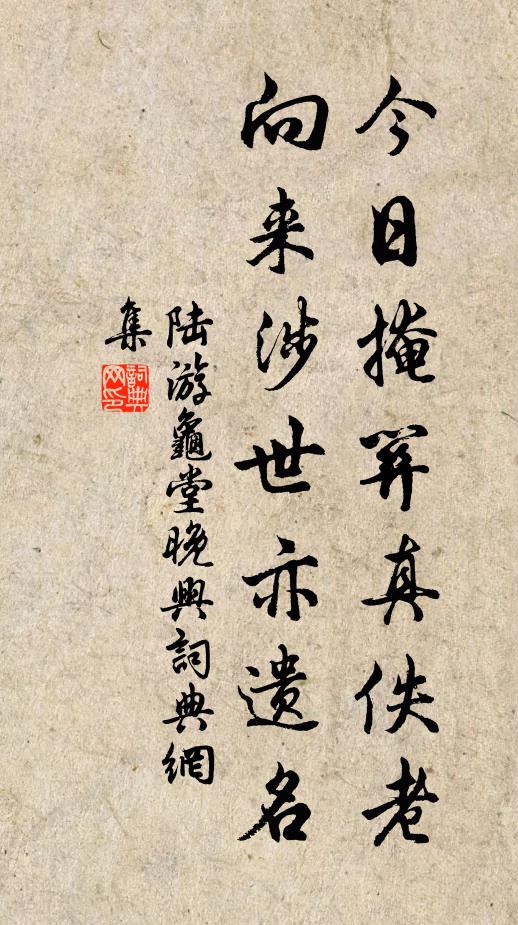 今日掩關真佚老
向来涉世亦遺名
陆游龜堂晚興詞典網
集
詞典網印